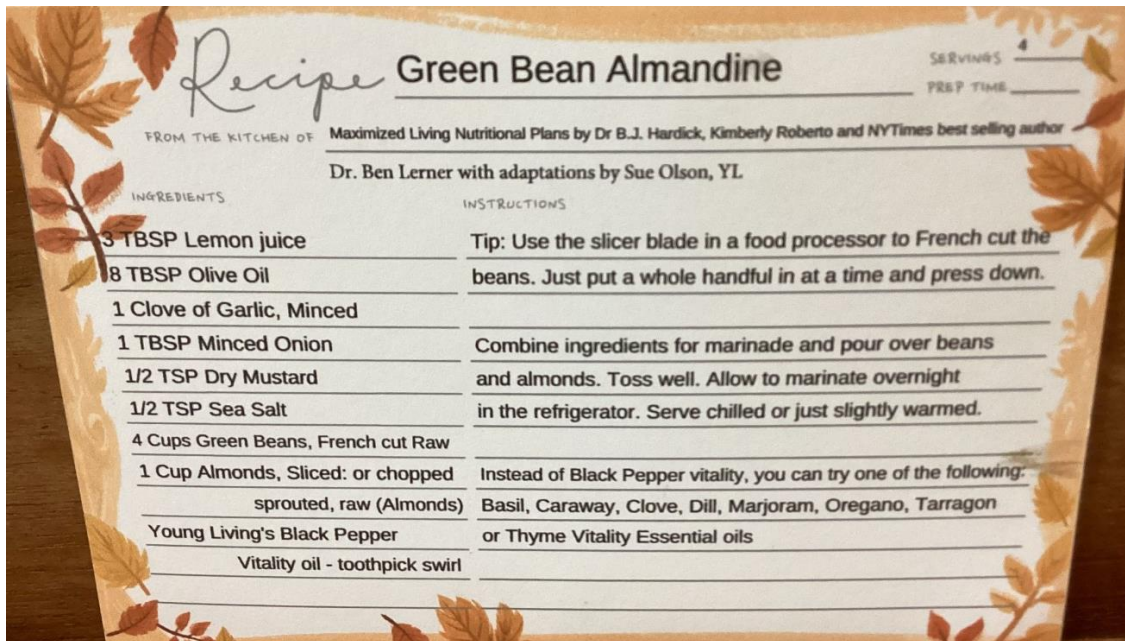 Recipe Green Bean Almandine
SERVINGS 4
PREP TIME
FROM THE KITCHEN OF Maximized Living Nutritional Plans by Dr B.J. Hardick, Kimberly Roberto and NYTimes best selling author
Dr. Ben Lerner with adaptations by Sue Olson, YL
INGREDIENTS
3 TBSP Lemon juice
8 TBSP Olive Oil
1 Clove of Garlic, Minced
1 TBSP Minced Onion
1/2 TSP Dry Mustard
1/2 TSP Sea Salt
4 Cups Green Beans, French cut Raw
1 Cup Almonds, Sliced: or chopped
sprouted, raw (Almonds)
Young Living's Black Pepper
Vitality oil - toothpick swirl
INSTRUCTIONS
Tip: Use the slicer blade in a food processor to French cut the
beans. Just put a whole handful in at a time and press down.
Combine ingredients for marinade and pour over beans
and almonds. Toss well. Allow to marinate overnight
in the refrigerator. Serve chilled or just slightly warmed.
Instead of Black Pepper vitality, you can try one of the following:
Basil, Caraway, Clove, Dill, Marjoram, Oregano, Tarragon
or Thyme Vitality Essential oils